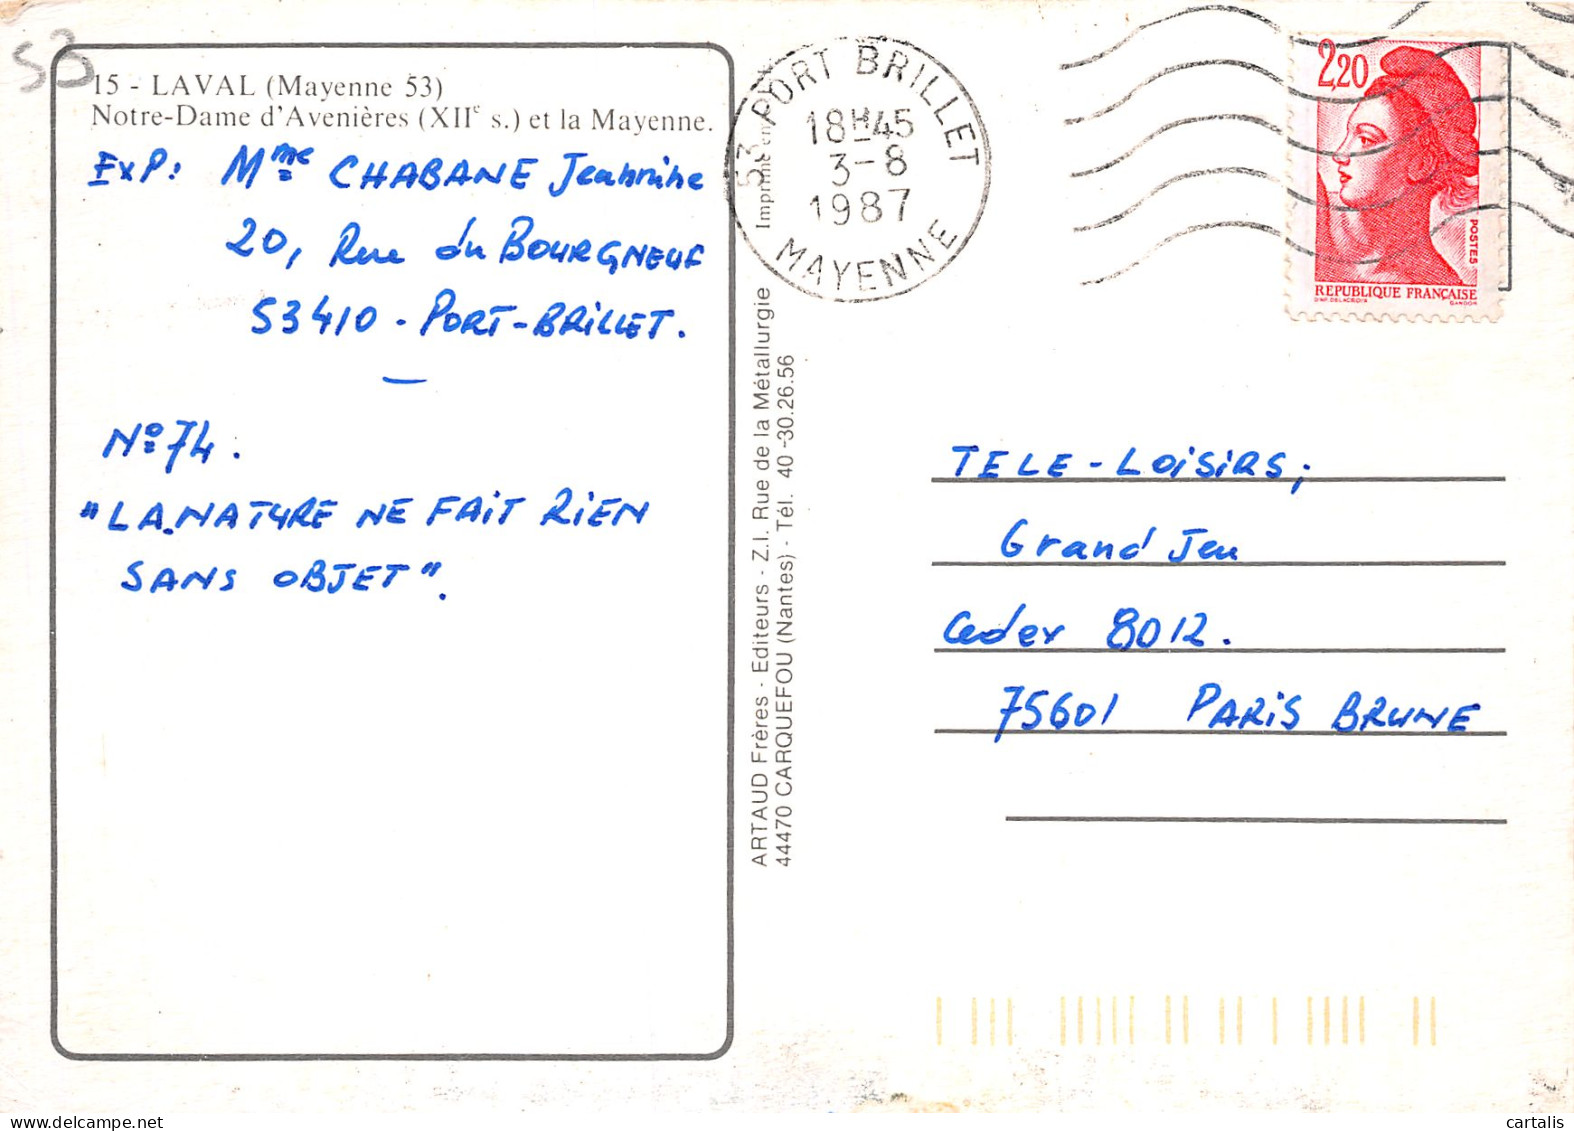 53
15 - LAVAL (Mayenne 53)
Notre-Dame d'Avenières (XIIe s.) et la Mayenne.
EXP: Mme CHABANE Jeannine
20, Rue du BOURGNEUF
53410 - PORT-BRILLET.
N° 74.
"LA NATURE NE FAIT RIEN
SANS OBJET".
Imprimé en
ARTAUD Frères - Editeurs - Z.I. Rue de la Métallurgie
44470 CARQUEFOU (Nantes) - Tél. 40 -30.26.56
53 PORT BRILLET
18H45
3-8
1987
MAYENNE
2,20
POSTES
REPUBLIQUE FRANÇAISE
D'AP. DELACROIX GANDON
TELE-LOISIRS,
Grand Jeu
Cedex 8012.
75601 PARIS BRUNE
cartalis delcampe.net